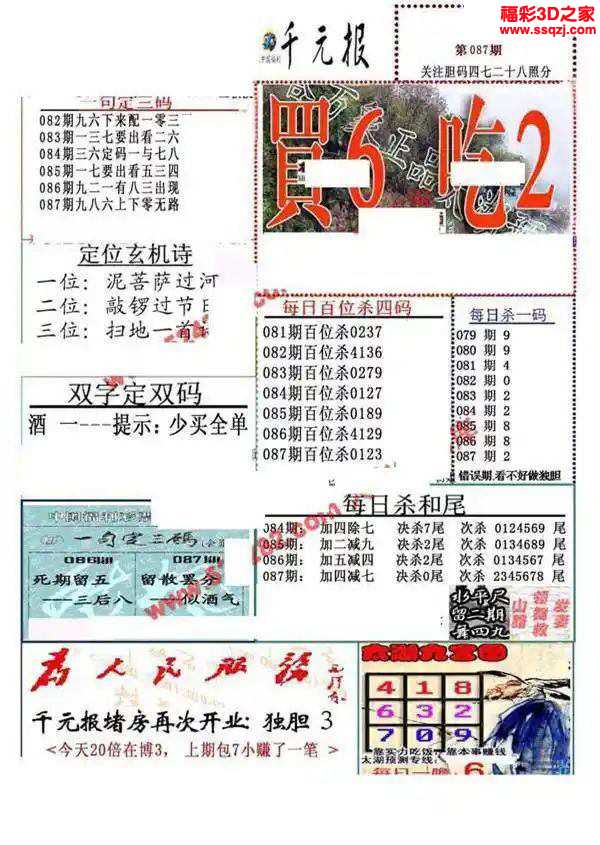 福彩3D之家
www.ssqzj.com
千元报
第087期
关注胆码四七二十八照分
一句定三码
082期九六下来配一零三
083期一三七要出看二六
084期三六定码一与七八
085期一七要出看五三四
086期九二一有八三出现
087期九八六上下零无路
買6 吃2
定位玄机诗
一位：泥菩萨过河
二位：敲锣过节日
三位：扫地一首
每日百位杀四码
081期百位杀0237
082期百位杀4136
083期百位杀0279
084期百位杀0127
085期百位杀0189
086期百位杀4129
087期百位杀0123
每日杀一码
079 期 9
080 期 9
081 期 4
082 期 0
083 期 2
084 期 2
085 期 8
086 期 8
087 期 2
错误期.看不好做独胆
双字定双码
酒 一---提示：少买全单
一句定三码
086期
087期
死期留五
留散罢分
---三后八
---似酒气
每日杀和尾
084期： 加四除七 决杀7尾 次杀 0124569 尾
085期： 加二减九 决杀2尾 次杀 0134689 尾
086期： 加五减四 决杀2尾 次杀 0134567 尾
087期： 加四减七 决杀0尾 次杀 2345678 尾
水平尺
留二期
舞四九
为人民服务
千元报堵房再次开业：独胆 3
<今天20倍在博3，上期包7小赚了一笔 >
太湖九宫图
4 1 8
6 3 2
7 0 9
靠实力吃饭！靠本事赚钱
太湖预测专线：
每日一胆 6